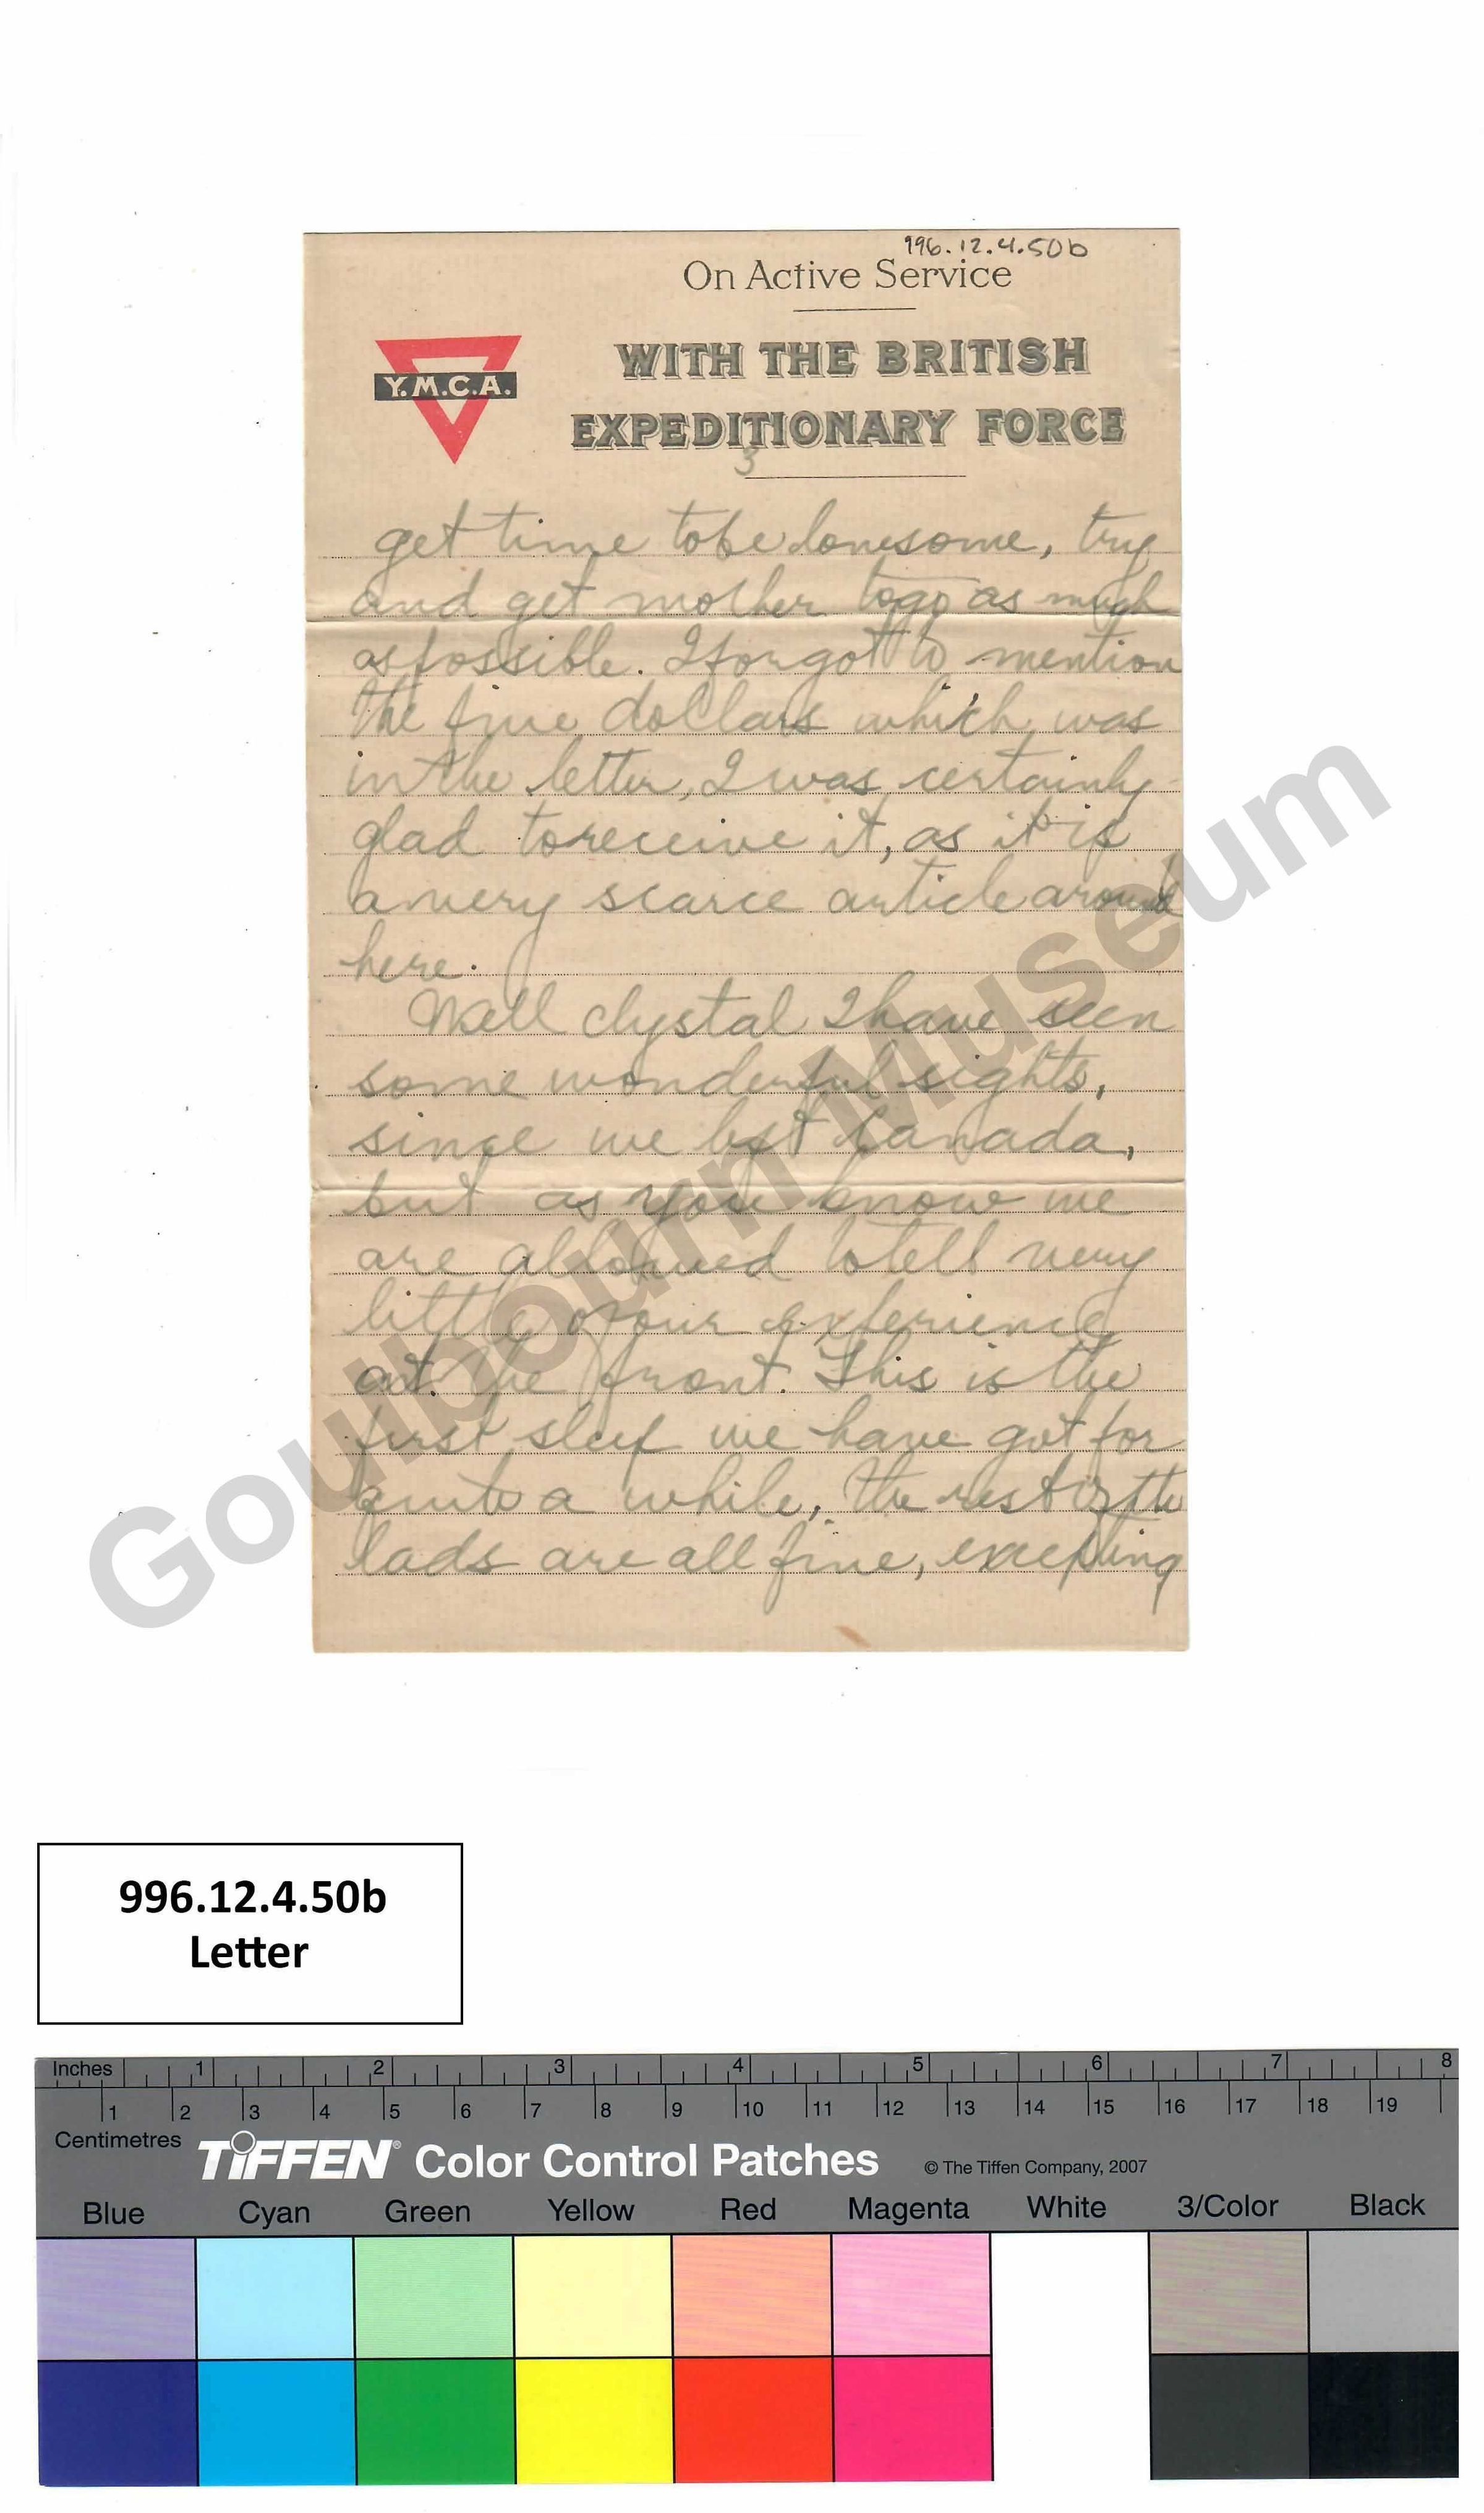 996.12.4.50b
On Active Service
Y.M.C.A.
WITH THE BRITISH
EXPEDITIONARY FORCE
3
get time to be lonesome, try
and get mother to go as much
as possible. I forgot to mention
the five dollars which was
in the letter, I was certainly
glad to receive it, as it is
a very scarce article around
here.
Well Chrystal I have seen
some wonderful sights,
since we left Canada,
but as you know we
are allowed to tell very
little of our experience
at the front. This is the
first sleep we have got for
quite a while. The rest of the
lads are all fine, excepting
Goulbourn Museum
996.12.4.50b
Letter
Inches 1 2 3 4 5 6 7 8
1 2 3 4 5 6 7 8 9 10 11 12 13 14 15 16 17 18 19
Centimetres
TIFFEN® Color Control Patches © The Tiffen Company, 2007
Blue Cyan Green Yellow Red Magenta White 3/Color Black